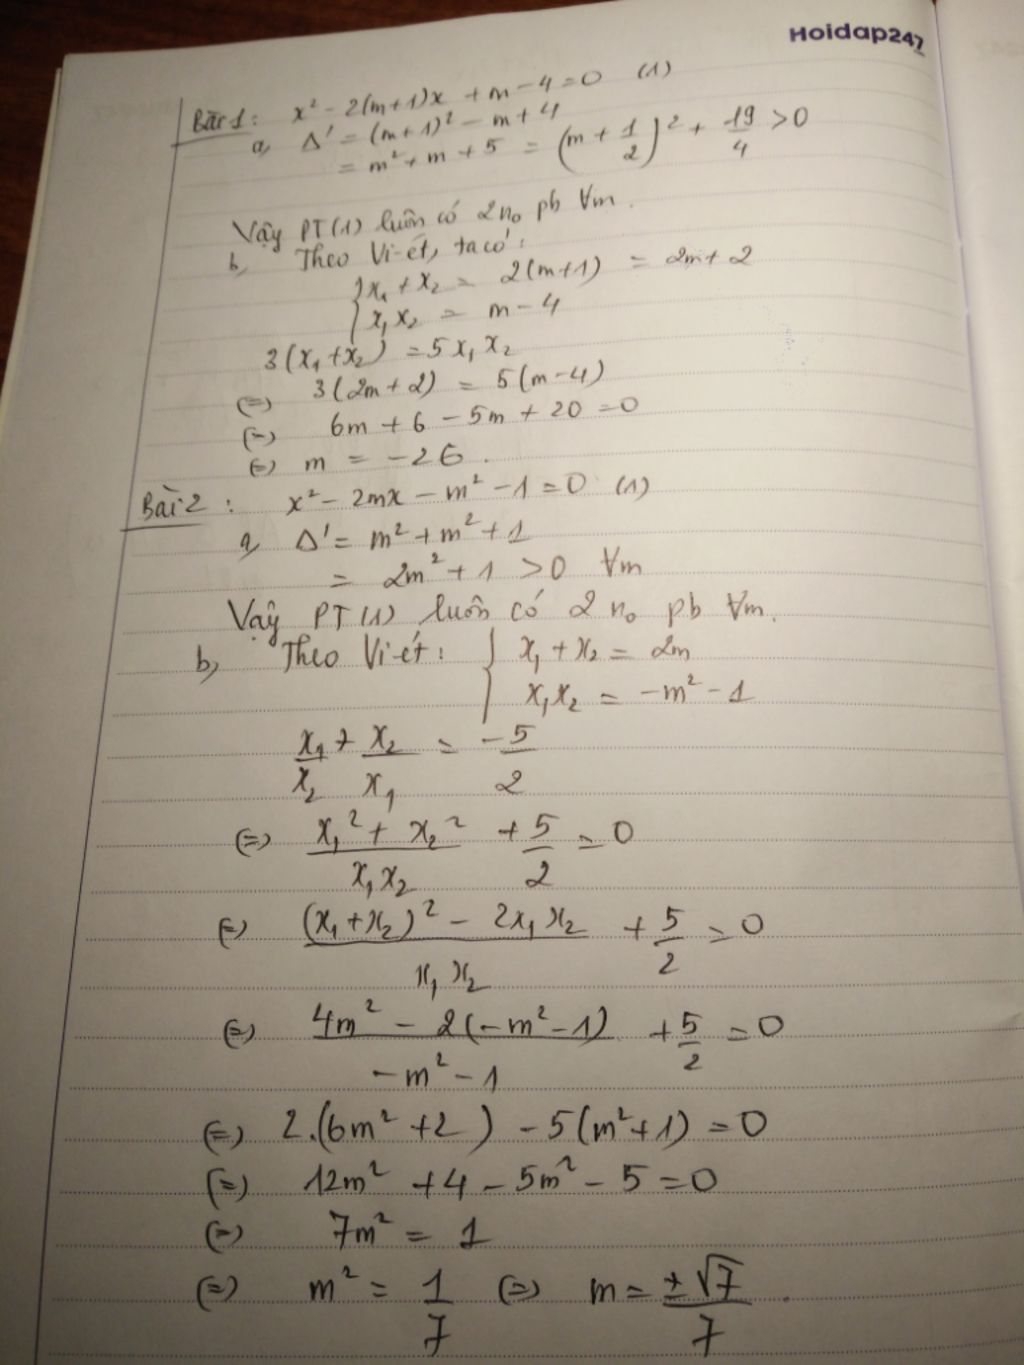 Hoidap247
Bài 1: x² - 2(m+1)x + m - 4 = 0 (1)
a, Δ' = (m+1)² - m + 4
= m² + m + 5 = (m + 1/2)² + 19/4 > 0
Vậy PT(1) luôn có 2 n₀ pb ∀m.
b, Theo Vi-ét, ta có:
{ x₁ + x₂ = 2(m+1) = 2m + 2
x₁x₂ = m - 4
3(x₁+x₂) = 5x₁x₂
(=) 3(2m+2) = 5(m-4)
(=) 6m + 6 - 5m + 20 = 0
(=) m = -26.
Bài 2: x² - 2mx - m² - 1 = 0 (1)
a, Δ' = m² + m² + 1
= 2m² + 1 > 0 ∀m
Vậy PT(1) luôn có 2 n₀ pb ∀m.
b, Theo Vi-ét: { x₁ + x₂ = 2m
x₁x₂ = -m² - 1
x₁/x₂ + x₂/x₁ = -5/2
(=) (x₁² + x₂²)/(x₁x₂) + 5/2 = 0
(=) ((x₁+x₂)² - 2x₁x₂)/(x₁x₂) + 5/2 = 0
(=) (4m² - 2(-m²-1))/(-m² - 1) + 5/2 = 0
(=) 2.(6m² + 2) - 5(m²+1) = 0
(=) 12m² + 4 - 5m² - 5 = 0
(=) 7m² = 1
(=) m² = 1/7 (=) m = ±√7/7.